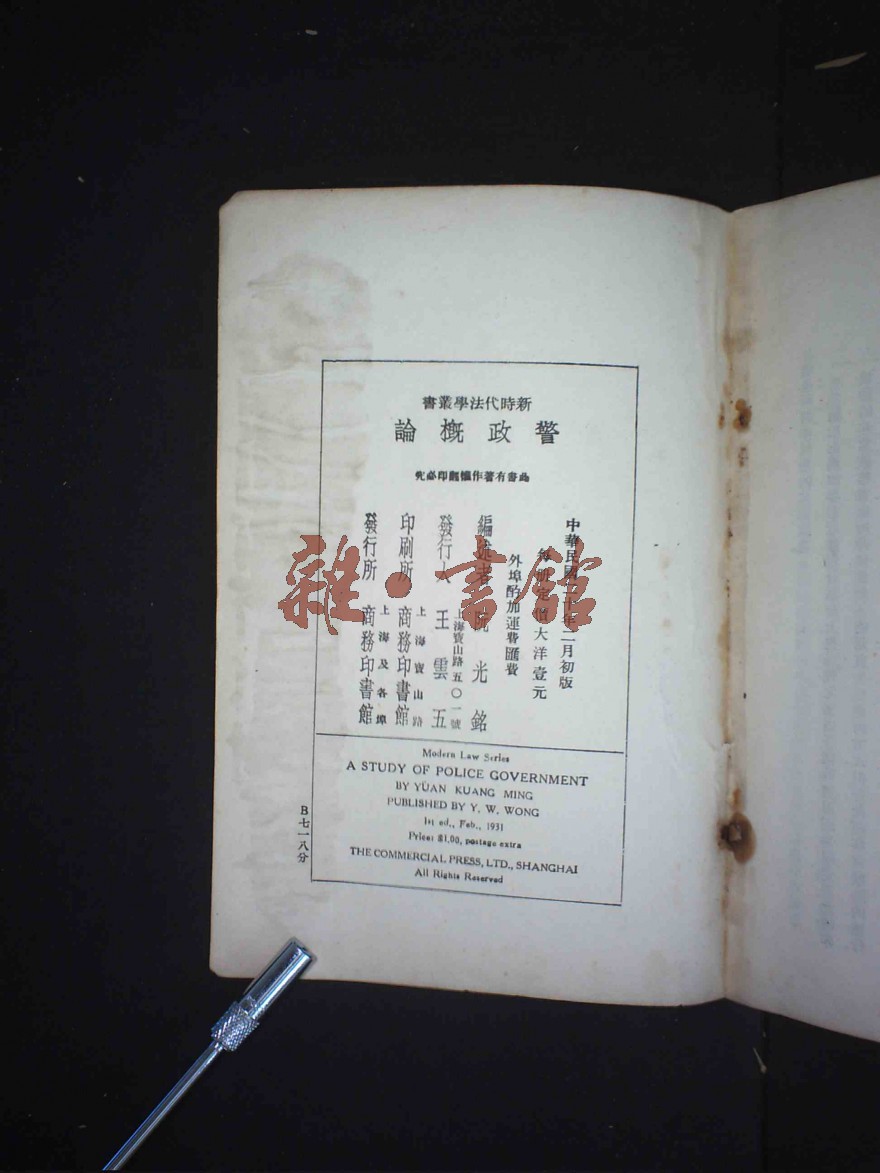 新時代法學叢書
警政槪論
此書有著作權翻印必究
中華民國二十年二月初版
每册定價大洋壹元
外埠酌加運費匯費
編述者 阮光銘
發行人 王雲五
上海寶山路五〇一號
印刷所 商務印書館
上海寶山路
發行所 商務印書館
上海及各埠
Modern Law Series
A STUDY OF POLICE GOVERNMENT
BY YÜAN KUANG MING
PUBLISHED BY Y. W. WONG
1st ed., Feb., 1931
Price: $1.00, postage extra
THE COMMERCIAL PRESS, LTD., SHANGHAI
All Rights Reserved
B七一八分
雜·書館